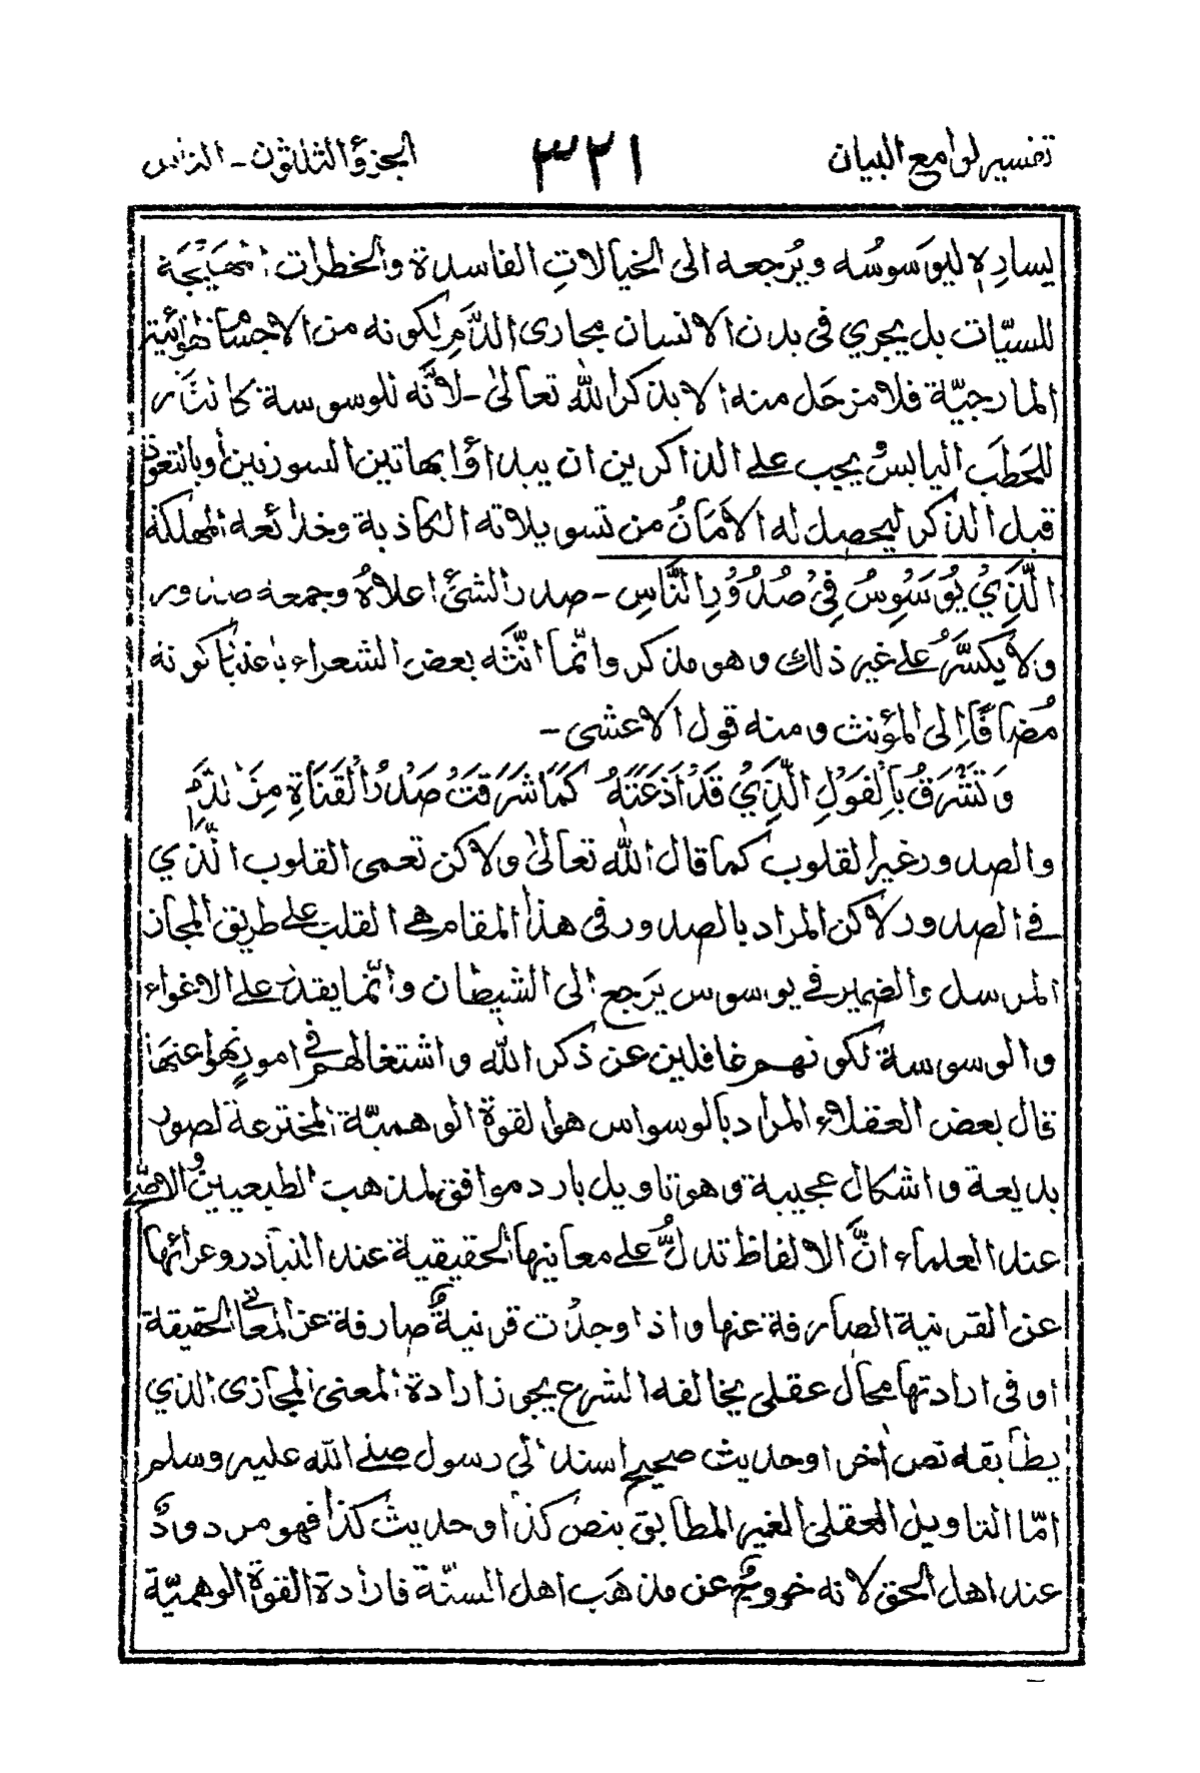 تفسير لوامع البيان ٣٢١ الجزؤ الثلثون - الناس
يسادِه ليوَسوسُه ويُرجعه الى الخيالاتِ الفاسدة والخطرات المهَيِّجَة
للسيّات بل يجري فى بدن الانسان مجارى الدَّمِ لكونه من الاجسام الهوائية
المارجيّة فلا مزحَل منه الا بذكر الله تعالىٰ - لأنَّه للوسوسة كالنَّار
للحَطَب اليابسُ يجب على الذاكرين ان يبداؤا بهاتين السورتين او بالتعوذ
قبل الذكر ليحصل له الاَمَانُ من تسويلاته الكاذبة وخدائعه المهلكة
الَّذِيْ يُوَسْوِسُ فِيْ صُدُوْرِ النَّاسِ - صدر الشئ اعلاهُ وجمعه صدور
ولا يكسَّرُ على غير ذلك وهو مذكر وانّما انّثه بعض الشعراء باعتبار كونه
مُضافًا الى المؤنث ومنه قول الاعشى -
وَتَشْرَقُ بِالْقَوْلِ الَّذِيْ قَدْ اَذَعْتَهُ كَمَا شَرَقَتْ صَدْرُ الْقَنَاةِ مِنَ الدَّمِ
والصدور غير القلوب كما قال الله تعالىٰ ولاكن تعمى القلوب الَّذي
في الصدور لاكن المراد بالصدور فى هذا المقام هي القلب على طريق المجاز
المرسل والضمير في يوسوس يَرجع الى الشيطان وانّما يقدر على الاغواء
والوسوسة لكونهم غافلين عن ذكر الله واشتغالهم في امورٍ نهوا عنها
قال بعض العقلاء المراد بالوسواس هو القوة الوهميّة المخترعة لصور
بديعة واشكال عجيبة وهو تاويل بارد موافق لمذهب الطبعيين والاصح
عند العلماء انَّ الالفاظ تدلُّ على معانيها الحقيقية عند التبادر وعرائها
عن القرنية الصارفة عنها واذا وجدت قرنيةٌ صارفة عن المعانى الحقيقة
او فى ارادتها محال عقلى يخالفه الشرع يجوز ارادة المعنى المجازى الذي
يطابقه نص اٰخر او حديث صحيح اسند الى رسول صلے الله عليه وسلم
امّا التاويل العقلىْ الغير المطابق بنص كذا او حديث كذا فهو مردودٌ
عند اهل الحق لانه خروجٌ عن مذهَب اهل السنّة فارادة القوة الوهميّة